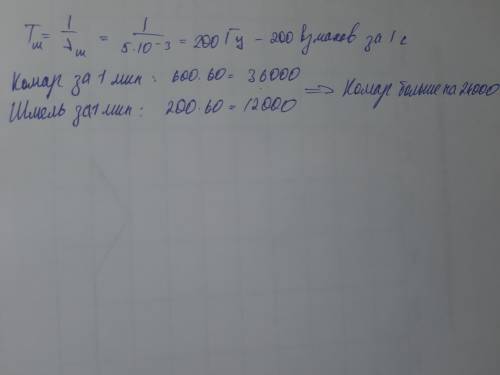 Tₘ = 1/λₘ = 1/5·10⁻³ = 200 Гц - 200 взмахов за 1 с
Комар за 1 мин: 600·60 = 36000
Шмель за 1 мин: 200·60 = 12000 ⇒ Комар больше на 24000